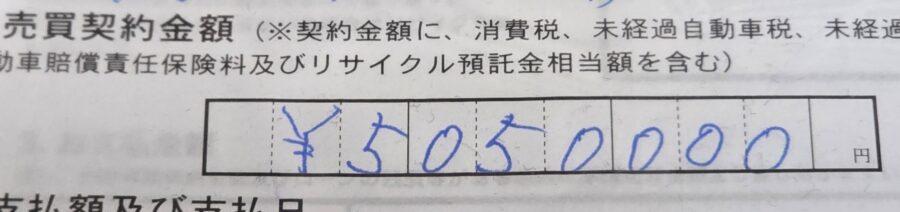 売買契約金額(※契約金額に、消費税、未経過自動車税、未経過
動車賠償責任保険料及びリサイクル預託金相当額を含む)
¥5050000円
支払額及び支払日